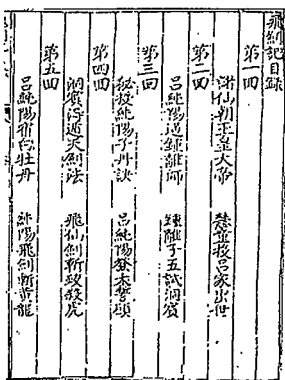 飛劍記目錄
第一回
諸仙朝玉皇大帝　慧童投呂家出世
第二回
呂純陽遇鍾離師　鍾離子五試洞賓
第三回
秘授純陽子丹訣　呂純陽發誓願
第四回
洞賓得遁天劍法　飛仙劍斬蛟殺虎
第五回
呂純陽宿白牡丹　純陽飛劍斬黃龍